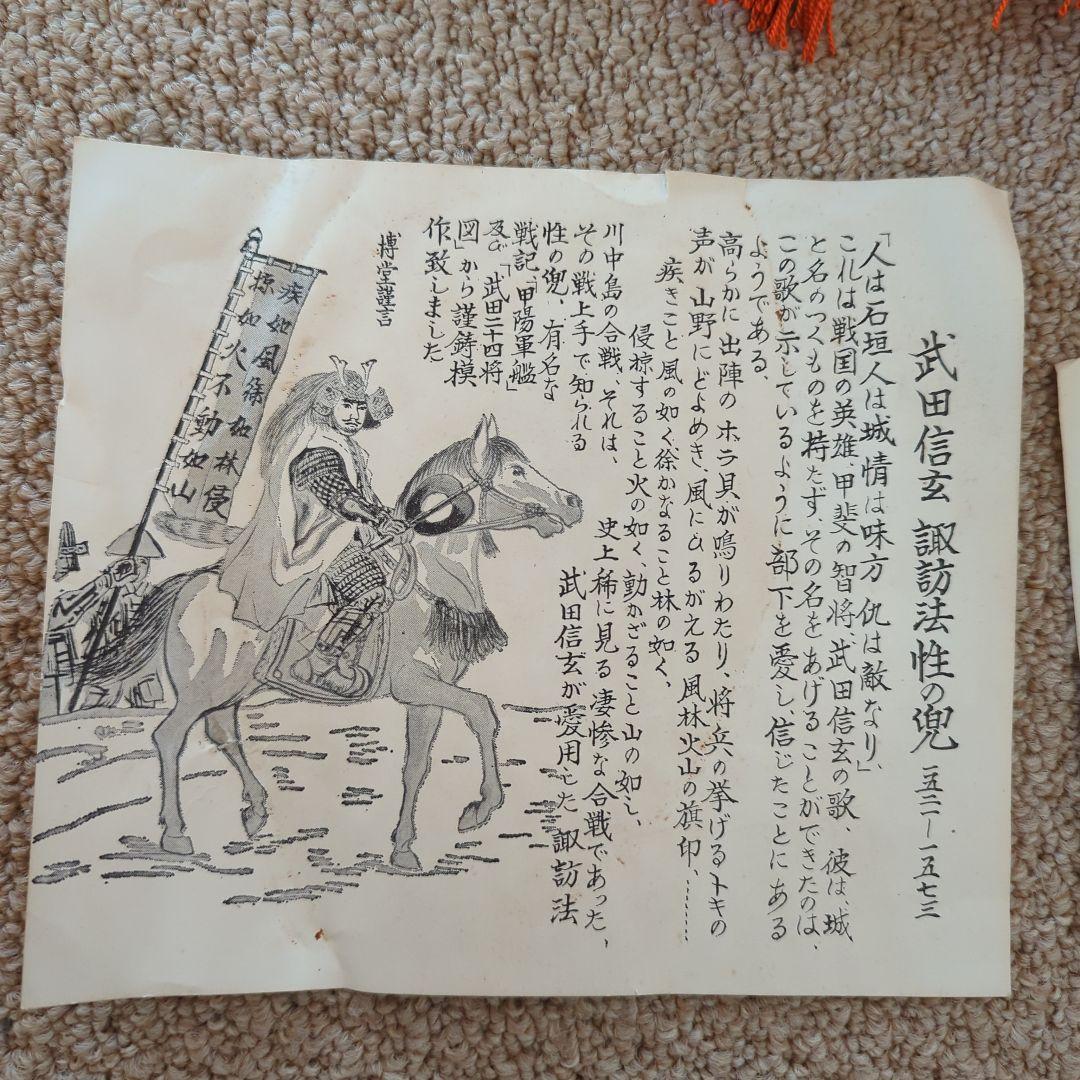 武田信玄 諏訪法性の兜 一五二一―一五七三
「人は石垣人は城 情は味方 仇は敵なり」
これは戦国の英雄、甲斐の智将、武田信玄の歌、彼は、城
と名のつくものを持たず、その名をあげることができたのは、
この歌が示しているように部下を愛し、信じたことにある
ようである、
高らかに出陣のホラ貝が鳴りわたり、将兵の挙げるトキの
声が山野にどよめき、風にひるがえる風林火山の旗印、……
疾きこと風の如く徐かなること林の如く、
侵掠すること火の如く、動かざること山の如し、
川中島の合戦、それは、史上稀に見る凄惨な合戦であった、
その戦上手で知られる武田信玄が愛用した諏訪法
性の兜、有名な
戦記、「甲陽軍艦」
及び「武田二十四将
図」から謹鋳模
作致しました
博堂謹言
疾如風徐如林侵
掠如火不動如山